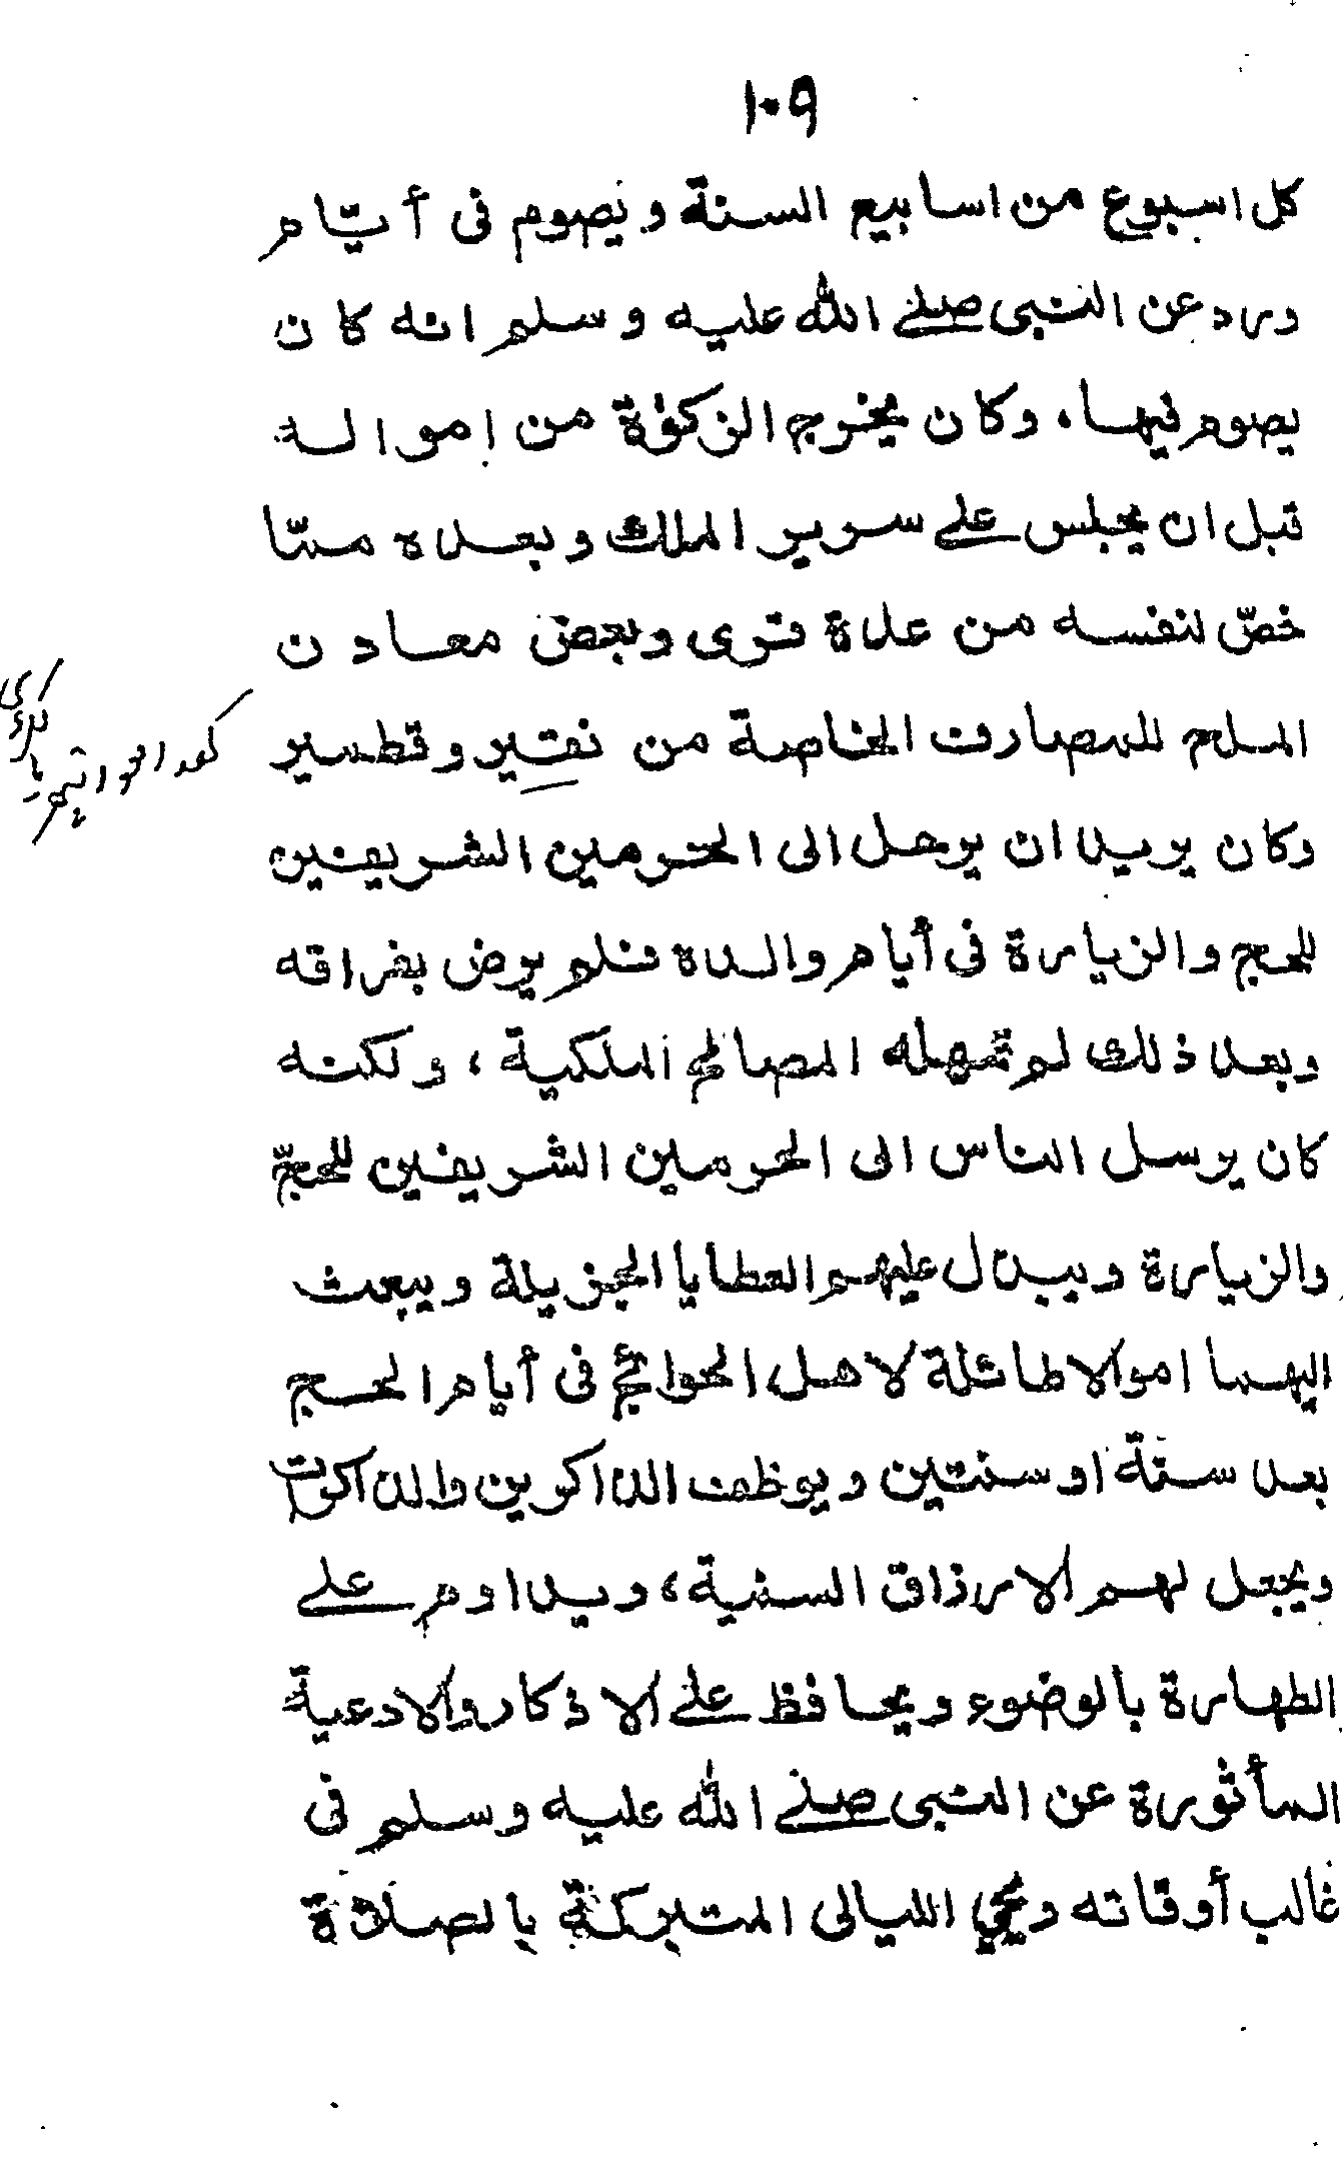 ١٠٩
كل اسبوع من اسابيع السنة ويصوم فى أيّام
ورد عن النبى صلے اللّٰه عليه وسلم انه كان
يصوم فيها، وكان يخرج الزكوٰة من اموالـه
قبل ان يجلس علے سرير الملك وبعده ممّا
خصّ لنفسه من عدة قرى وبعض معادن
الملح للمصارف الخاصة من نقير وقطمير
وكان يريد ان يرحل الى الحرمين الشريفين
للحج والزيارة فى أيام والده فلم يرض بفراقه
وبعد ذلك لم تمهله المصالح الملكية، ولكنه
كان يرسل الناس الى الحرمين الشريفين للحجّ
والزيارة ويبذل عليهم العطايا الجزيلة ويبعث
اليهما اموالا طائلة لاهل الحوائج فى أيام الحج
بعد سنة او سنتين ويوظف الذاكرين والذاكرات
ويجعل لهم الارزاق السنية، ويداوم علے
الطهارة بالوضوء ويحافظ علے الاذكار والادعية
المأثورة عن النبى صلے اللّٰه عليه وسلم فى
غالب أوقاته ويحيي الليالى المتبركة بالصلاة